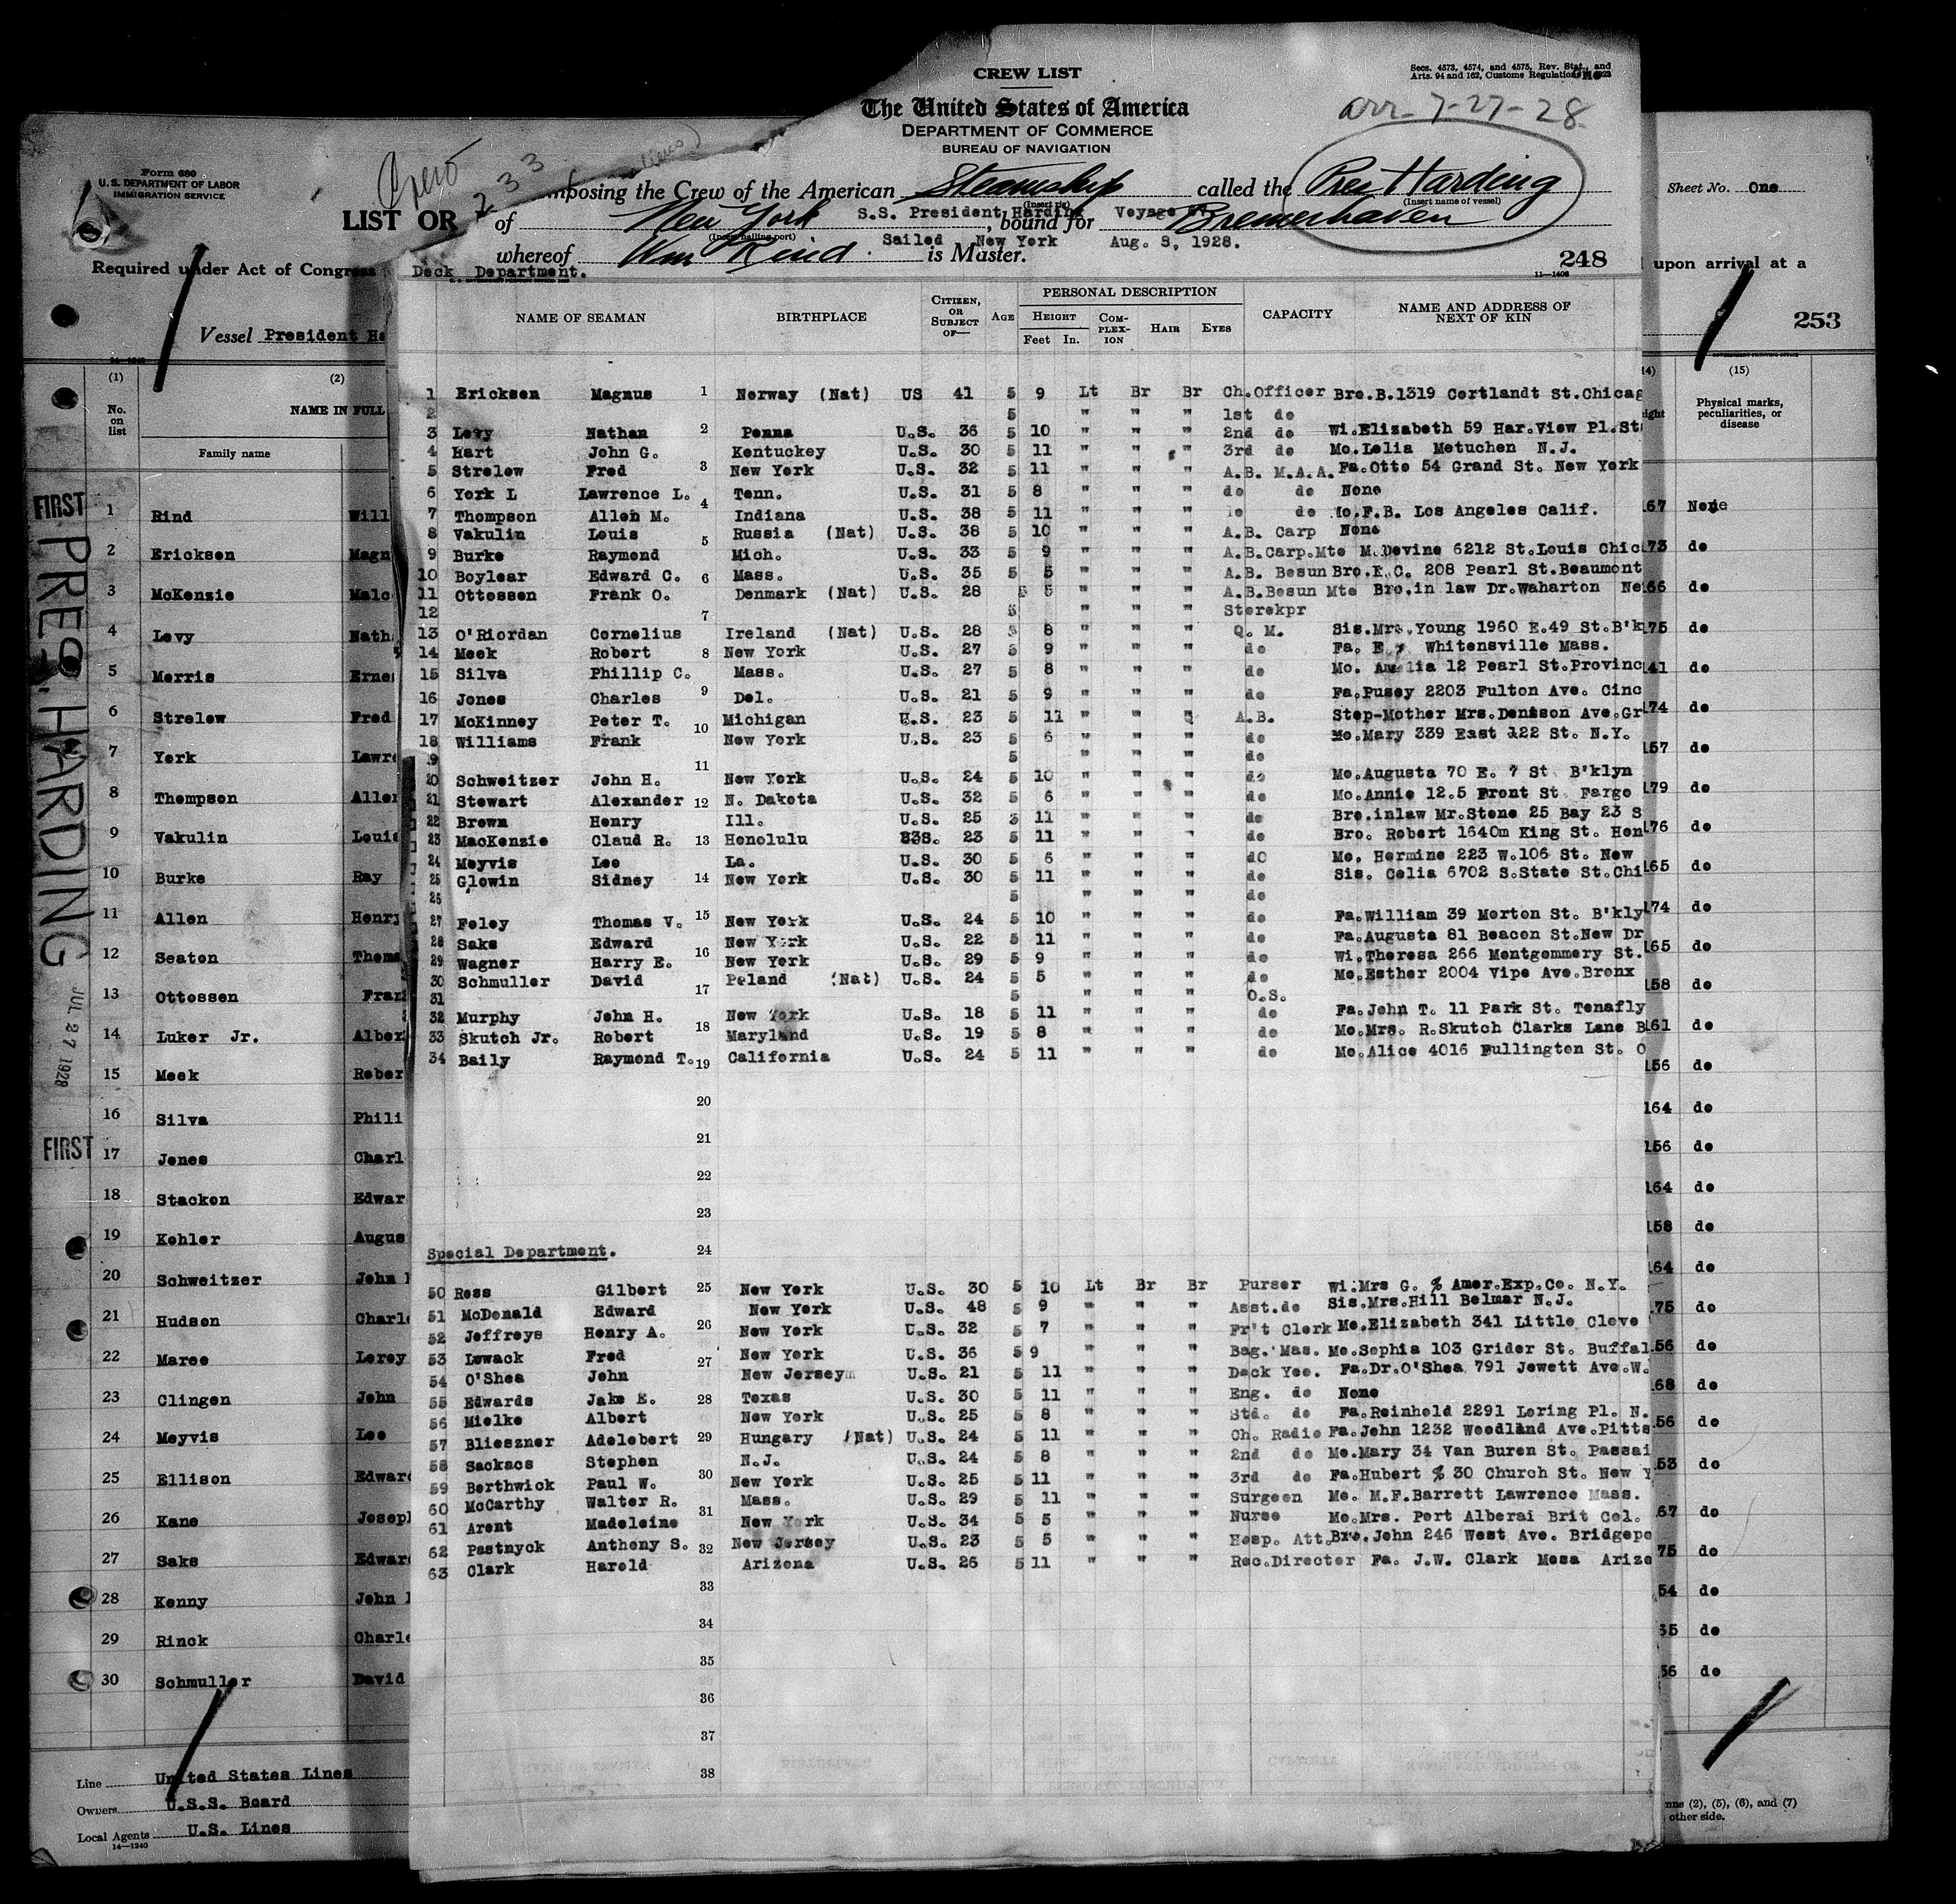 CREW LIST
Secs. 4573, 4574, and 4575, Rev. Stat., and
Arts. 94 and 162, Customs Regulations
The United States of America
arr- 7-27-28
DEPARTMENT OF COMMERCE
BUREAU OF NAVIGATION
Crew 233
mposing the Crew of the American Steamship called the Pres Harding
(Insert rig) (Insert name of vessel)
LIST OR
of New York S.S. President Harding Voyage , bound for Bremerhaven
Sailed New York Aug. 8, 1928.
whereof Wm Rind is Master.
248
11-1406
Deck Department.
NAME OF SEAMAN BIRTHPLACE CITIZEN, OR SUBJECT OF— AGE PERSONAL DESCRIPTION CAPACITY NAME AND ADDRESS OF NEXT OF KIN
HEIGHT COM-PLEX-ION HAIR EYES
Feet In.
1 Ericksen Magnus 1 Norway (Nat) US 41 5 9 Lt Br Br Ch.Officer Bro.B.1319 Cortlandt St.Chicag
2 5 " " " 1st do
3 Levy Nathan 2 Penna U.S. 36 5 10 " " " 2nd do Wi.Elizabeth 59 Har.View Pl.St
4 Hart John G. Kentucky U.S. 30 5 11 " " " 3rd do Mo.Lelia Metuchen N.J.
5 Strelow Fred 3 New York U.S. 32 5 11 " " " A.B. M.A.A. Fa.Otto 54 Grand St. New York
6 York L Lawrence L. 4 Tenn. U.S. 31 5 8 " " " do do None
7 Thompson Allen M. Indiana U.S. 38 5 11 " " " do do Mo.F.B. Los Angeles Calif.
8 Vakulin Louis 5 Russia (Nat) U.S. 38 5 10 " " " A.B. Carp None
9 Burke Raymond Mich. U.S. 33 5 9 " " " A.B.Carp.Mte M.Devine 6212 St.Louis Chic
10 Boylear Edward C. 6 Mass. U.S. 35 5 5 " " " A.B. Bosun Bro.E.C. 208 Pearl St.Beaumont
11 Ottossen Frank O. Denmark (Nat) U.S. 28 5 5 " " " A.B.Bosun Mte Bro.in law Dr.Waharton Ne
12 7 5 " " " Storekpr
13 O'Riordan Cornelius Ireland (Nat) U.S. 28 5 8 " " " Q. M. Sis.Mrs.Young 1960 E.49 St.B'k
14 Meek Robert 8 New York U.S. 27 5 9 " " " do Fa. E. Whitensville Mass.
15 Silva Phillip C. Mass. U.S. 27 5 8 " " " do Mo. Amelia 12 Pearl St.Provinc
16 Jones Charles 9 Del. U.S. 21 5 9 " " " do Fa.Pusey 2203 Fulton Ave. Cinc
17 McKinney Peter T. 10 Michigan U.S. 23 5 11 " " " A.B. Step-Mother Mrs.Denison Ave.Gr
18 Williams Frank New York U.S. 23 5 6 " " " do Mo.Mary 339 East 122 St. N.Y.
19 11 5 " " " do
20 Schweitzer John H. New York U.S. 24 5 10 " " " do Mo.Augusta 70 E. 7 St B'klyn
21 Stewart Alexander 12 N. Dakota U.S. 32 5 6 " " " do Mo.Annie 12.5 Front St Fargo
22 Brown Henry Ill. U.S. 25 5 11 " " " do Bro.inlaw Mr.Stone 25 Bay 23 S
23 MacKenzie Claud R. 13 Honolulu U.S. 23 5 11 " " " do Bro. Robert 1640m King St. Hon
24 Meyvis Leo La. U.S. 30 5 6 " " " dO Mo. Hermine 223 W.106 St. New
25 Glowin Sidney 14 New York U.S. 30 5 11 " " " do Sis. Celia 6702 S.State St.Chi
26 5 " " " do
27 Foley Thomas V. 15 New York U.S. 24 5 10 " " " do Fa.William 39 Morton St. B'kly
28 Saks Edward New York U.S. 22 5 11 " " " do Fa.Augusta 81 Beacon St.New Dr
29 Wagner Harry E. 16 New York U.S. 29 5 9 " " " do Wi.Theresa 266 Montgommery St.
30 Schmuller David 17 Poland (Nat) U.S. 24 5 5 " " " do Mo.Esther 2004 Vipe Ave.Bronx
31 5 " " " O.S.
32 Murphy John H. New York U.S. 18 5 11 " " " do Fa.John T. 11 Park St. Tenafly
33 Skutch Jr. Robert 18 Maryland U.S. 19 5 8 " " " do Mo.Mrs. R.Skutch Clarks Lane B
34 Baily Raymond T. 19 California U.S. 24 5 11 " " " do Mo.Alice 4016 Fullington St. O
20
21
22
23
Special Department. 24
50 Ross Gilbert 25 New York U.S. 30 5 10 Lt Br Br Purser Wi.Mrs G. % Amer.Exp.Co. N.Y.
51 McDonald Edward New York U.S. 48 5 9 " " " Asst.do Sis.Mrs.Hill Belmar N.J.
52 Jeffreys Henry A. 26 New York U.S. 32 5 7 " " " Fr't Clerk Mo.Elizabeth 341 Little Cleve
53 Lowack Fred 27 New York U.S. 36 5 9 " " " Bag. Mas. Mo.Sophia 103 Grider St. Buffal
54 O'Shea John New Jersey U.S. 21 5 11 " " " Deck Yeo. Fa.Dr.O'Shea 791 Jewett Ave.W.
55 Edwards Jake E. 28 Texas U.S. 30 5 11 " " " Eng. do None
56 Mielke Albert New York U.S. 25 5 8 " " " Std. do Fa.Reinhold 2291 Loring Pl. N.
57 Blieszner Adelebert 29 Hungary (Nat) U.S. 24 5 11 " " " Ch. Radio Fa.John 1232 Woodland Ave.Pitts
58 Sackacs Stephen N.J. U.S. 24 5 8 " " " 2nd do Mo.Mary 34 Van Buren St. Passai
59 Borthwick Paul W. 30 New York U.S. 25 5 11 " " " 3rd do Fa.Hubert % 30 Church St. New Y
60 McCarthy Walter R. 31 Mass. U.S. 29 5 11 " " " Surgeon Mo. M.F.Barrett Lawrence Mass.
61 Arent Madeleine New York U.S. 34 5 5 " " " Nurse Mo.Mrs. Port Alberai Brit Col.
62 Pastnyck Anthony S. 32 New Jersey U.S. 23 5 5 " " " Hosp. Att. Bro.John 246 West Ave. Bridgepo
63 Clark Harold Arizona U.S. 26 5 11 " " " Rec.Director Fa. J.W. Clark Mesa Arizo
33
34
35
36
37
38
Form 680
U.S. DEPARTMENT OF LABOR
IMMIGRATION SERVICE
Sheet No. One
Required under Act of Congress
upon arrival at a
Vessel President Ha
253
(1) (2) (14) (15)
No. on list NAME IN FULL Physical marks, peculiarities, or disease
Family name
FIRST
PRES. HARDING
JUL 27 1928
FIRST
1 Rind Will 167 None
2 Ericksen Magn 173 do
3 McKenzie Malc 166 do
4 Levy Nath 175 do
5 Morris Ernes 141 do
6 Strelow Fred 174 do
7 York Lawre 157 do
8 Thompson Allen 179 do
9 Vakulin Louis 176 do
10 Burke Ray 165 do
11 Allen Henry 174 do
12 Seaton Thoma 165 do
13 Ottossen Fran 158 do
14 Luker Jr. Alber 161 do
15 Meek Rober 156 do
16 Silva Phili 164 do
17 Jones Charl 156 do
18 Stacken Edwar 164 do
19 Kohler Augus 158 do
20 Schweitzer John 164 do
21 Hudson Charl 175 do
22 Maree Leroy 156 do
23 Clingen John 168 do
24 Meyvis Leo 156 do
25 Ellison Edward 153 do
26 Kane Joseph 167 do
27 Saks Edward 175 do
28 Kenny John 54 do
29 Rinck Charle 55 do
30 Schmuller David 56 do
Line United States Lines
Owners U.S.S. Board
Local Agents U.S. Lines
14-1240
mns (2), (5), (6), and (7)
other side.